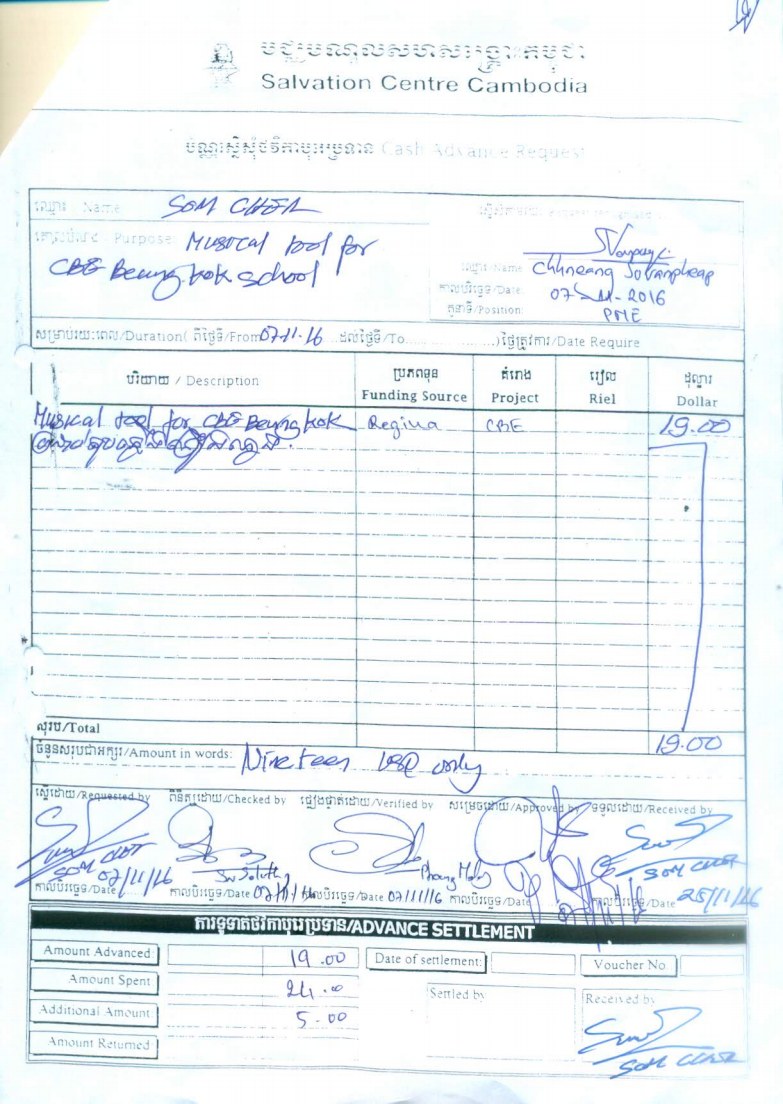 Salvation Centre Cambodia
Cash Advance Request
ឈ្មោះ Name: SOM
គោលបំណង Purpose: Musical tool for
CBE Beung kok school
ឈ្មោះ/Name: Chhneang
កាលបរិច្ឆេទ/Date: 07-11-2016
តួនាទី/Position: PME
សម្រាប់រយៈពេល/Duration( ពីថ្ងៃទី/From 07-11-16 ដល់ថ្ងៃទី/To )ថ្ងៃត្រូវការ/Date Require
បរិយាយ / Description
ប្រភពទុន
Funding Source
គំរោង
Project
រៀល
Riel
ដុល្លារ
Dollar
Musical tool for CBE Beung kok Regina CBE 19.00
សរុប/Total 19.00
ចំនួនសរុបជាអក្សរ/Amount in words: Nineteen USD only
ស្នើដោយ/Requested by ពិនិត្យដោយ/Checked by ផ្ទៀងផ្ទាត់ដោយ/Verified by សម្រេចដោយ/Approved by ទទួលដោយ/Received by
SOM SOM
កាលបរិច្ឆេទ/Date 07/11/16 កាលបរិច្ឆេទ/Date 07/11/16 កាលបរិច្ឆេទ/Date 07/11/16 កាលបរិច្ឆេទ/Date កាលបរិច្ឆេទ/Date 25/11/16
ការទូទាត់ថវិកាបុរេប្រទាន/ADVANCE SETTLEMENT
Amount Advanced 19.00 Date of settlement: Voucher No
Amount Spent 24.00 Settled by Received by
Additional Amount 5.00
Amount Returned
SOM